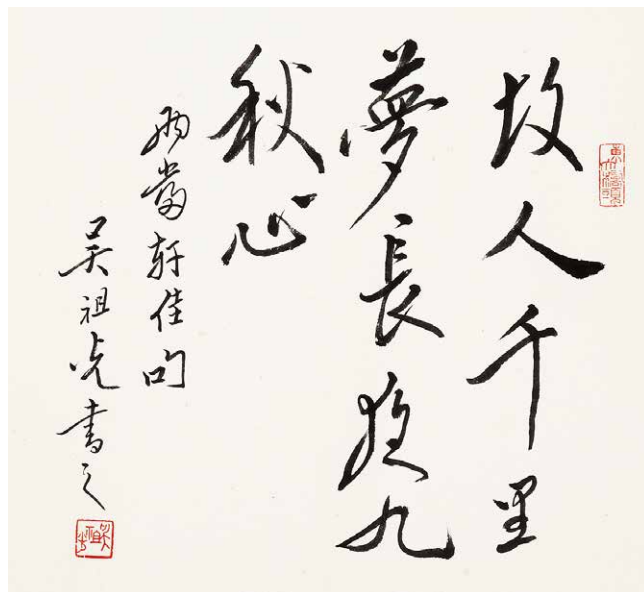 故人千里
夢長夜九
秋心
兩當軒佳句
吳祖光書之